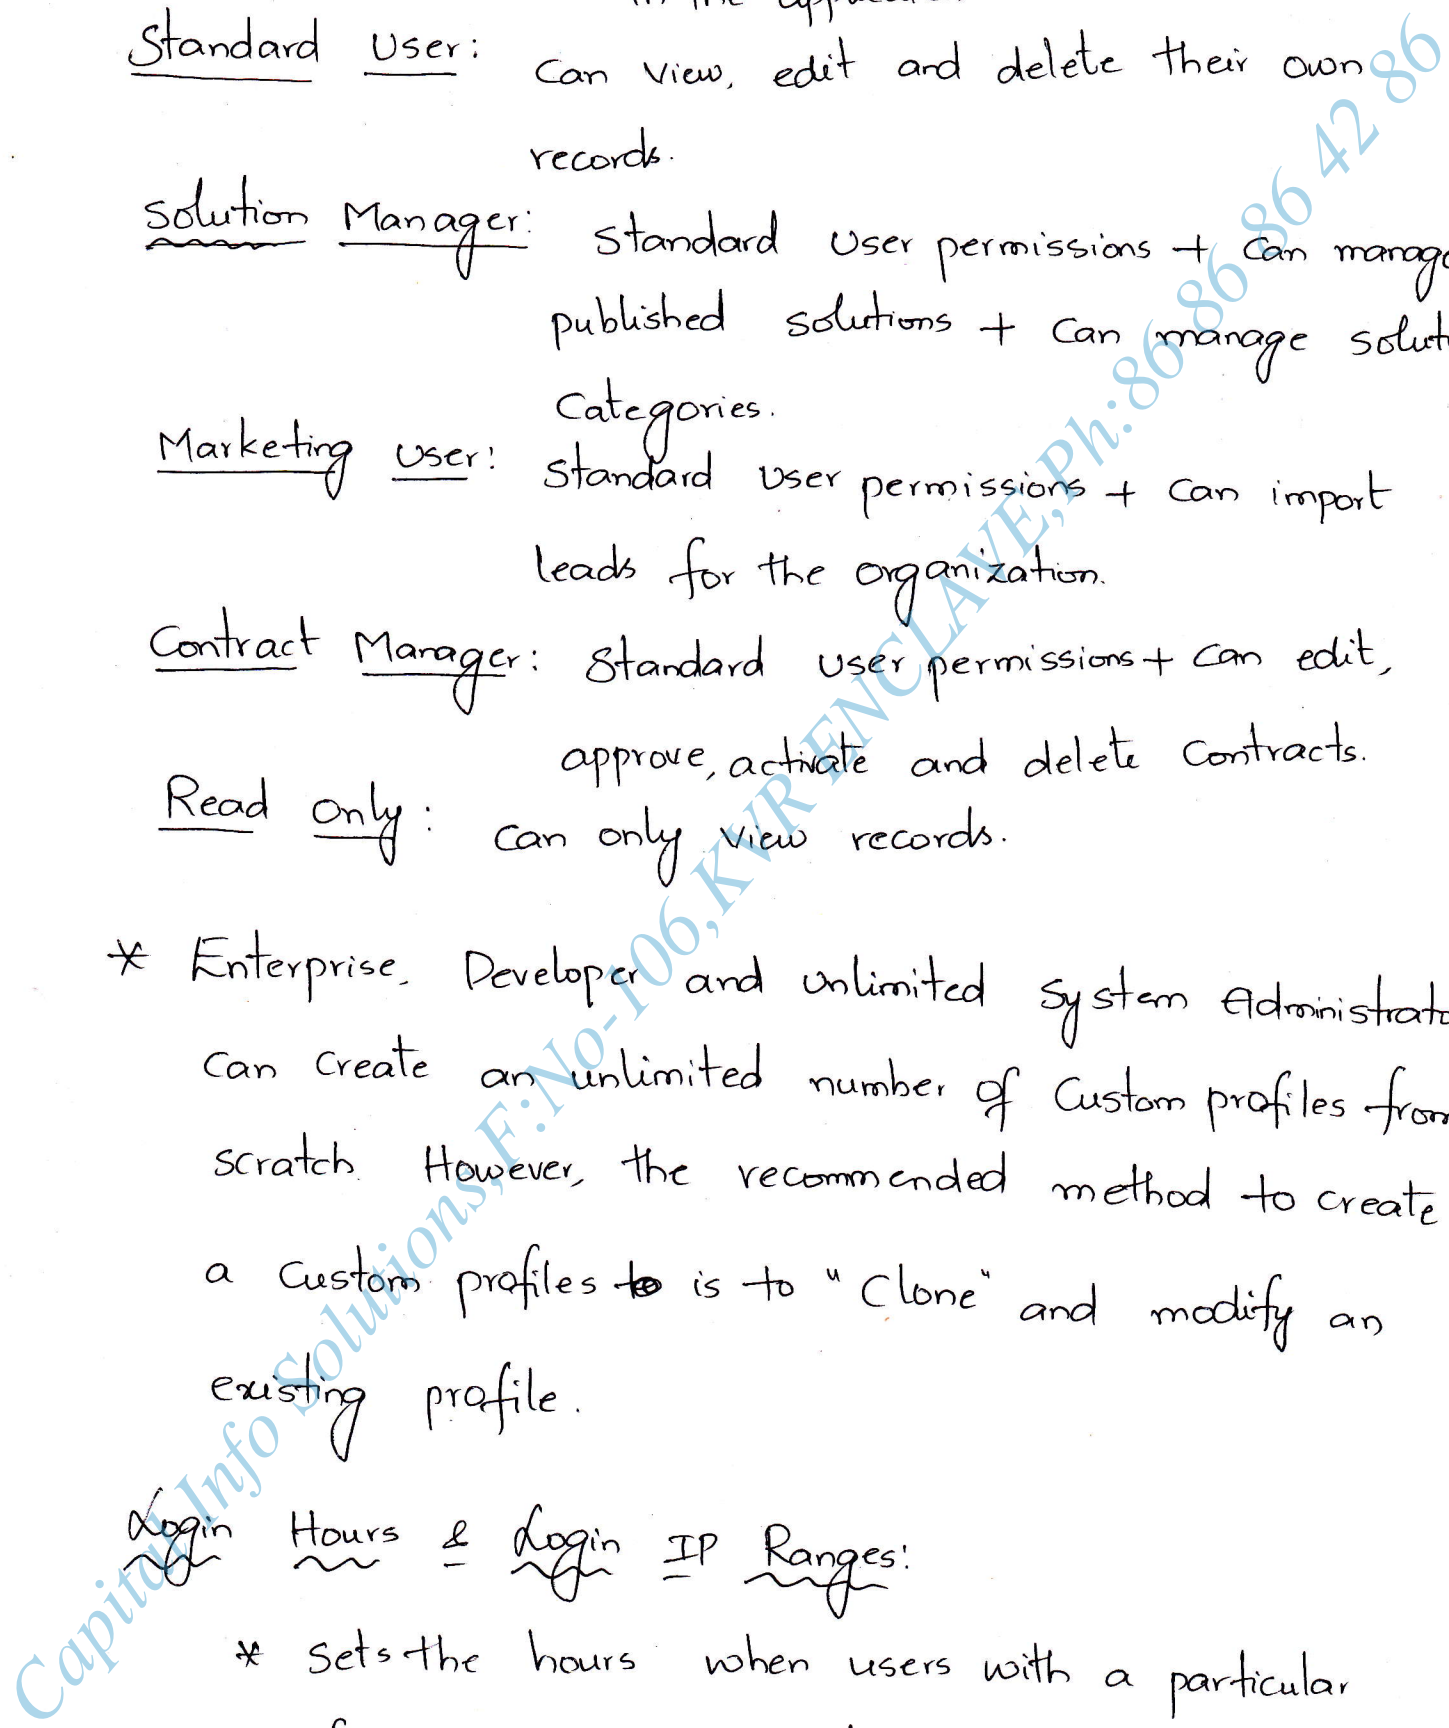 in the
Standard User: Can view, edit and delete their own
records.
Solution Manager: Standard User permissions + Can manage
published solutions + Can manage solut
Categories.
Marketing User: Standard User permissions + Can import
leads for the organization.
Contract Manager: Standard User permissions + Can edit,
approve, activate and delete Contracts.
Read Only: Can only view records.
* Enterprise, Developer and Unlimited System Administrato
Can Create an unlimited number of Custom profiles from
scratch. However, the recommended method to create
a Custom profiles is to "Clone" and modify an
existing profile.
Login Hours & Login IP Ranges:
* Sets the hours when users with a particular
Capital Info Solutions,F:No-106,KWR ENCLAVE,Ph:86 86 86 42 86